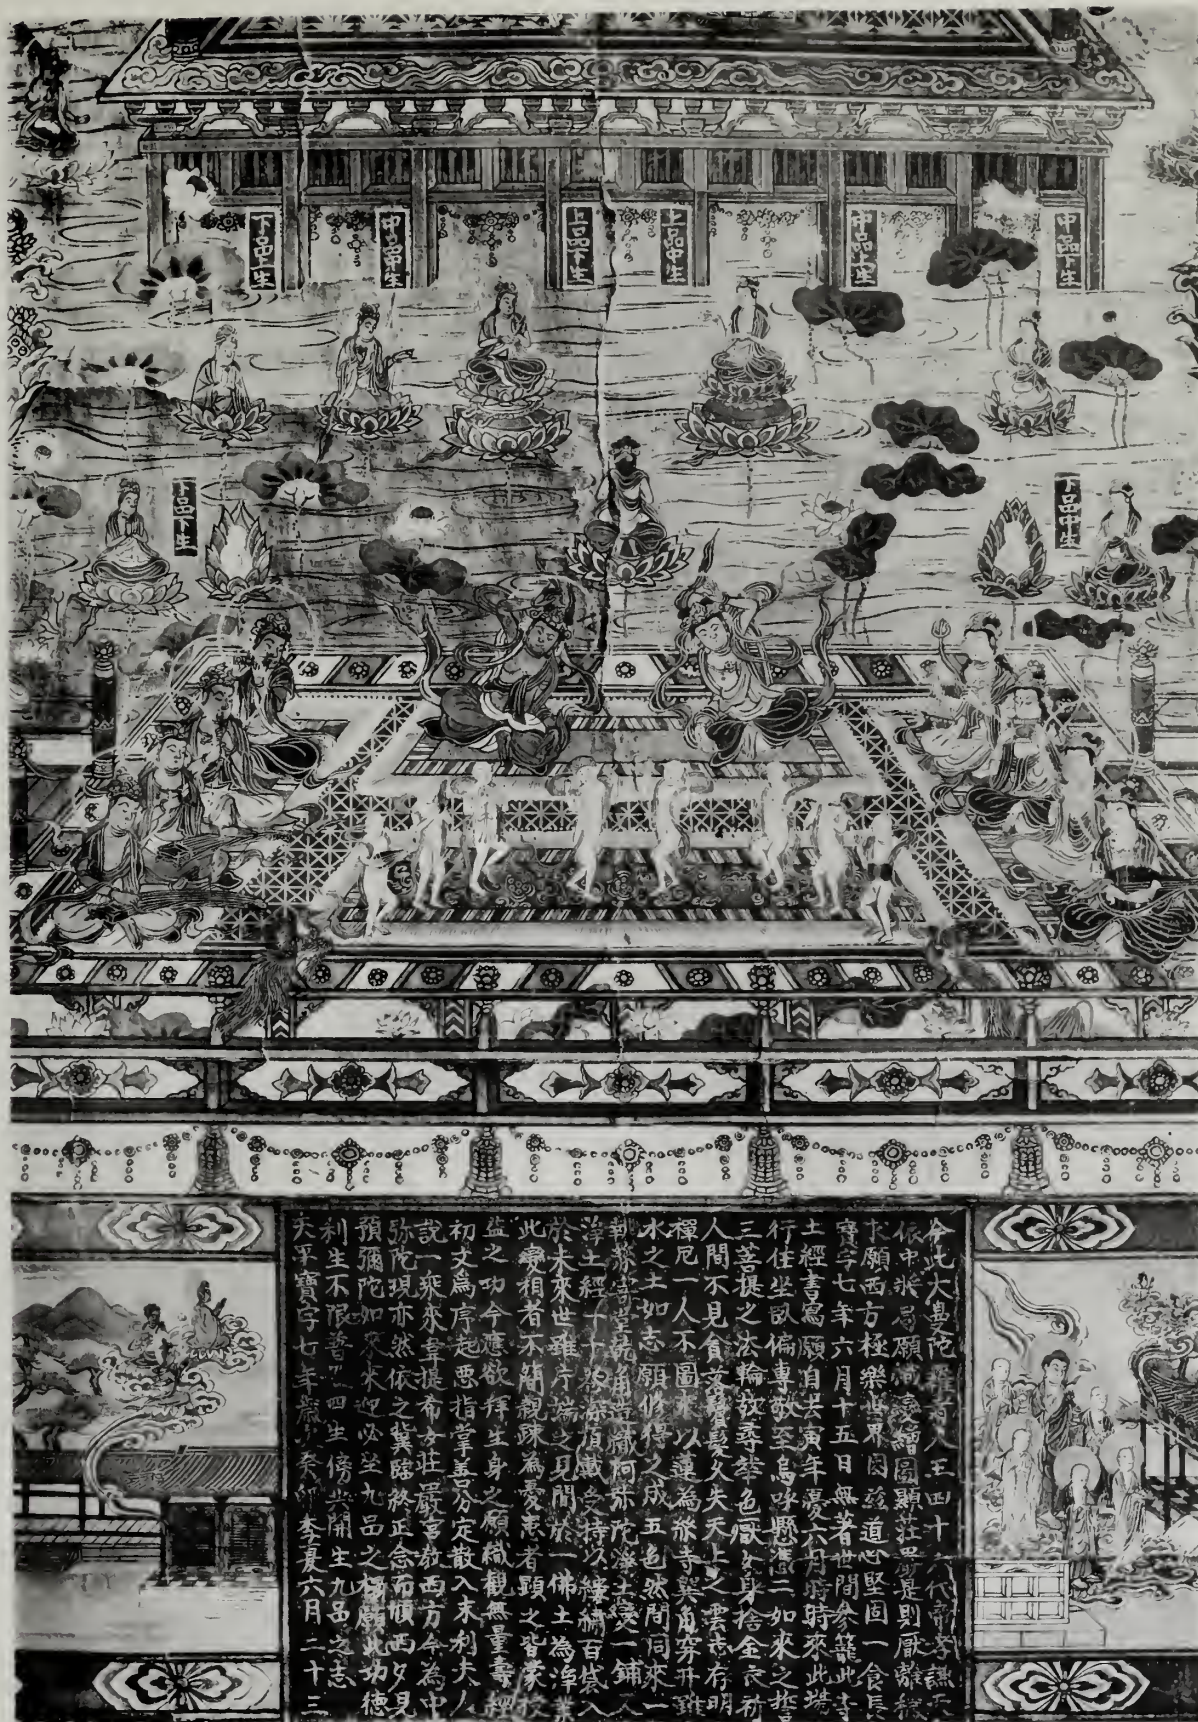 中品下生
中品上生
上品中生
上品下生
中品中生
下品上生
下品中生
下品下生
今此大曼陀羅者人王四十六代帝孝謙天
依中將局願誠変繪圖顯莊嚴是則厭離穢
求願西方極樂世界因兹道心堅固一食長
寶字七年六月十五日無著世間参籠此寺
土經書寫願自去寅年憂六月時来此場
行住坐臥偏專敬至烏呼懸二如来之誓
三菩提之法輪欲尋華色厭女身捨金衣祈
人間不見貪女鬘髮久失天上之雲志存明
禪尼一人不圖来以蓮為絲寺巽角穿井雖
水之土如志願修得之成五色然間同来一
堂乾角造織阿弥陀浄土変一鋪
浄土經一十頂戴受持以縷綿百袋入
於未来世雖片端之見聞於一佛土為浄業
此变相者不簡親踈為憂恵者顕之皆蒙校
益之功今應欲拜生身之願織観無量壽經
初文為序起悪指掌善分定散入末利夫人
説一乗来韋提希女荘嚴宮教西方今為中
弥陀現亦然依之冀臨終正念而順西夕見
預彌陀如来来迎必坐九品之願此功徳
利生不限普四生傍共開生九品之志
天平寶字七年歳次癸卯季夏六月二十三